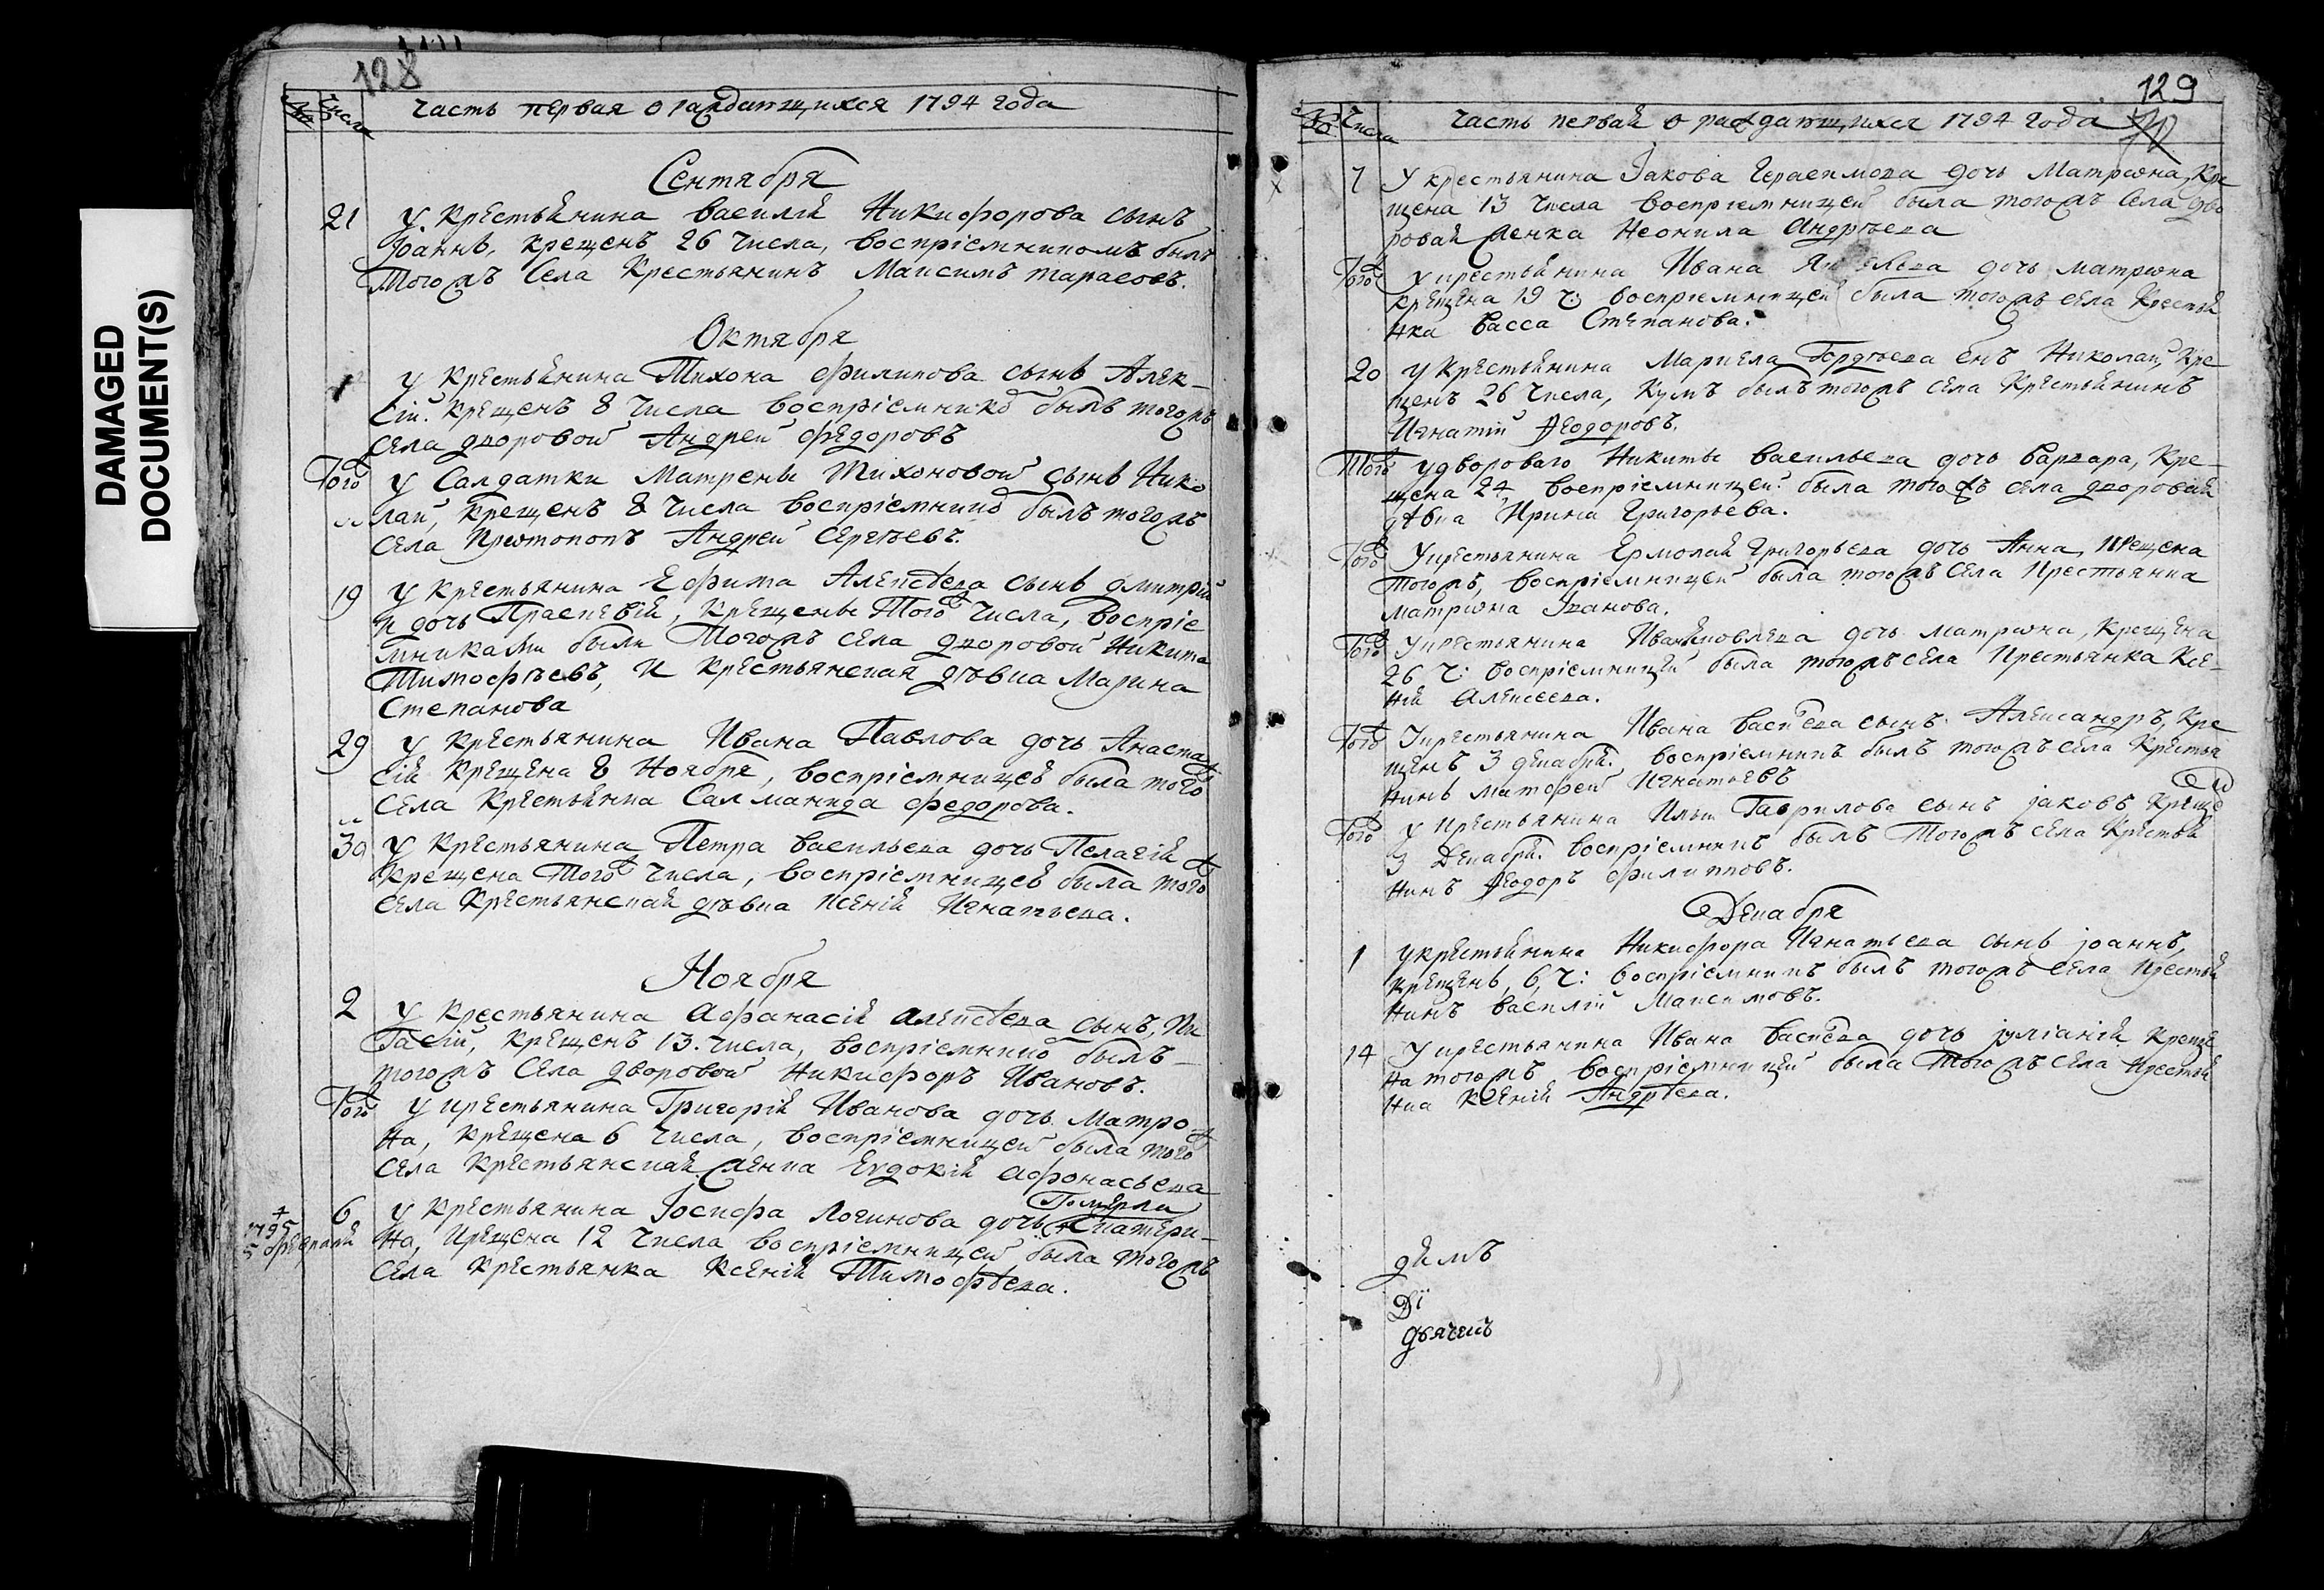 DAMAGED
DOCUMENT(S)
128
№ Числа
Часть первая о раждающихся 1794 года
Сентября
21 У крестьянина Василія Никифорова сынъ
Іоаннъ, крещенъ 26 числа, воспріемникомъ былъ
тогожъ села крестьянинъ Максимъ Тарасовъ.
Октября
1 У крестьянина Тихона Филипова сынъ Алек-
сій. крещенъ 8 числа воспріемнико былъ тогожъ
села дворовой Андрей Федоровъ
Того У салдатки Матрены Тихоновой сынъ Нико
лай, крещенъ 8 числа воспріемнико былъ тогожъ
села протопопъ Андрей Сергѣевъ.
19 У крестьянина Ефима Алексѣева сынъ Дмитрій
и дочь Праскевія, крещены того числа, воспріе
мниками были тогожъ села дворовой Никита
Тимофѣевъ, и крестьянская дѣвка Марина
Степанова
29 У крестьянина Ивана Павлова дочь Анаста
сія крещена 8 Ноября, воспріемницей была того
села крестьянка Салманида Федорова.
30 У крестьянина Петра Васильева дочь Пелагія
крещена того числа, воспріемницей была того
села крестьянская дѣвка Ксенія Игнатьева.
Ноября
2 У крестьянина Афанасія Алексѣева сынъ,
крещенъ 13. числа, воспріемнико былъ
тогожъ села дворовой Никифоръ Ивановъ.
Того У крестьянина Григорія Иванова дочь Матро
на, крещена 6 числа, воспріемницей была того
села крестьянская женка Евдокія Афонасьева
Померла
6 У крестьянина Іосифа Логинова дочь Екатери-
на, крещена 12 числа воспріемницей была тогожъ
села крестьянка Ксенія Тимофѣева.
1795
5 февраля
129
№ Числа
Часть первая о раждающихся 1794 года
7 У крестьянина Іакова Герасимова дочь Матрона, кре
щена 13 числа воспріемницей была тогожъ села дво
ровая женка Неонила Андрѣева
Того У крестьянина Ивана дочь Матрона
крещена 19 ч: воспріемницей была тогожъ села крестья
нка Васса Степанова.
20 У крестьянина Маркела Гордѣева снъ Николай, кре
щенъ 26 числа, кумъ былъ тогожъ села крестьянинъ
Игнатій Ѳеодоровъ.
Того У двороваго Никиты Васильева дочь Варвара, кре-
щена 24, воспріемницей была тогожъ села дворовая
дѣвка Ирина Григорьева.
Того У крестьянина Ермолая Григорьева дочь Анна, крещена
тогожъ, воспріемницей была тогожъ села крестьянка
Матрона Іванова.
Того У крестьянина Ивана Яковлева дочь Матрона, крещена
26 ч: воспріемницей была тогожъ села крестьянка Ксе-
нія Алексеева.
Того У крестьянина Ивана сынъ Александръ, кре
щенъ 3 декабря. воспріемникъ былъ тогожъ села крестья
нинъ Матфей Игнатьевъ
Того У крестьянина Ильи Гаврилова сынъ Іаковъ креще
3 Декабря. воспріемникъ былъ тогожъ села крестья
нинъ Ѳеодоръ Филипповъ.
Декабря
1 У крестьянина Никифора Игнатьева сынъ Іоаннъ,
крещенъ, 6, ч: воспріемникъ былъ тогожъ села крестья
нинъ Василій Максимовъ.
14 У крестьянина Ивана дочь Іуліанія креще
на тогожъ воспріемницей была тогожъ села крестья
нка Ксенія Андрѣева.
Дї
дьячекъ